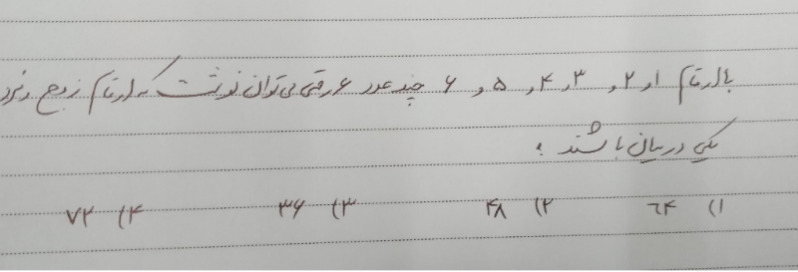 با ارقام ۱ و ۲ و ۳ و ۴ و ۵ و ۶ چند عدد ۶ رقمی می توان نوشت که ارقام زوج و فرد
یکی در میان باشند ؟
۱) ۶۴ ۲) ۴۸ ۳) ۳۶ ۴) ۷۲